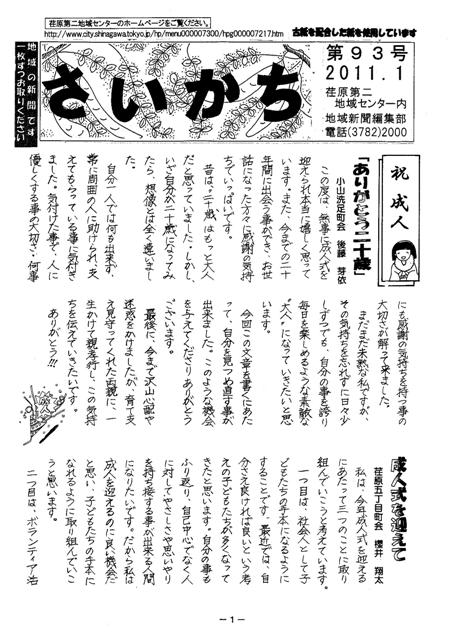 荏原第二地域センターのホームページをご覧ください。
http://www.city.shinagawa.tokyo.jp/hp/menu000007300/hpg000007217.htm
古紙を配合した紙を使用しています
地域の新聞です
一枚ずつお取りください
さいかち
第93号
2011.1
荏原第二
地域センター内
地域新聞編集部
電話(3782)2000
祝成人
「ありがとう二十歳」
小山洗足町会 後藤 芽依
この度は、無事に成人式を
迎えられ本当に嬉しく思って
います。また、今までの二十
年間に出会う事ができ、お世
話になった方々に感謝の気持
ちでいっぱいです。
昔は、二十歳はもっと大人
だと思っていました。しかし、
いざ自分が二十歳になってみ
たら、想像とは全く違いまし
た。
自分一人では何も出来ず、
常に周囲の人に助けられ、支
えてもらっている事に気付き
ました。気付けた事で、人に
優しくする事の大切さ、何事
にも感謝の気持ちを持つ事の
大切さが解って来ました。
まだまだ未熟な私ですが、
その気持ちを忘れずに日々少
しずつでも、自分の事を誇り
毎日を楽しめるような素敵な
“大人”になっていきたいと思
います。
今回この文章を書くにあた
って、自分を見つめ直す事が
出来ました。このような機会
を与えてくださりありがとう
ございます。
最後に、今まで沢山心配や
迷惑をかけましたが、育て支
え見守ってくれた両親に、一
生かけて親孝行し、この気持
ちを伝えていきたいです。
ありがとう!!!
成人式を迎えて
荏原五丁目町会 櫻井 翔太
私は、今年成人式を迎える
にあたって三つのことに取り
組んでいこうと考えています。
一つ目は、社会人として子
どもたちの手本になるように
することです。最近では、自
分さえ良ければ良いという考
えの子どもたちが多くなって
きたと思います。自分の事も
ふり返り、自己中心でなく人
に対してやさしさや思いやり
を持ち接する事が出来る人間
になりたいです。だから私は
成人を迎えるのに良い機会だ
と思い、子どもたちの手本に
なれるように取り組んでいこ
うと思います。
二つ目は、ボランティア活
－1－